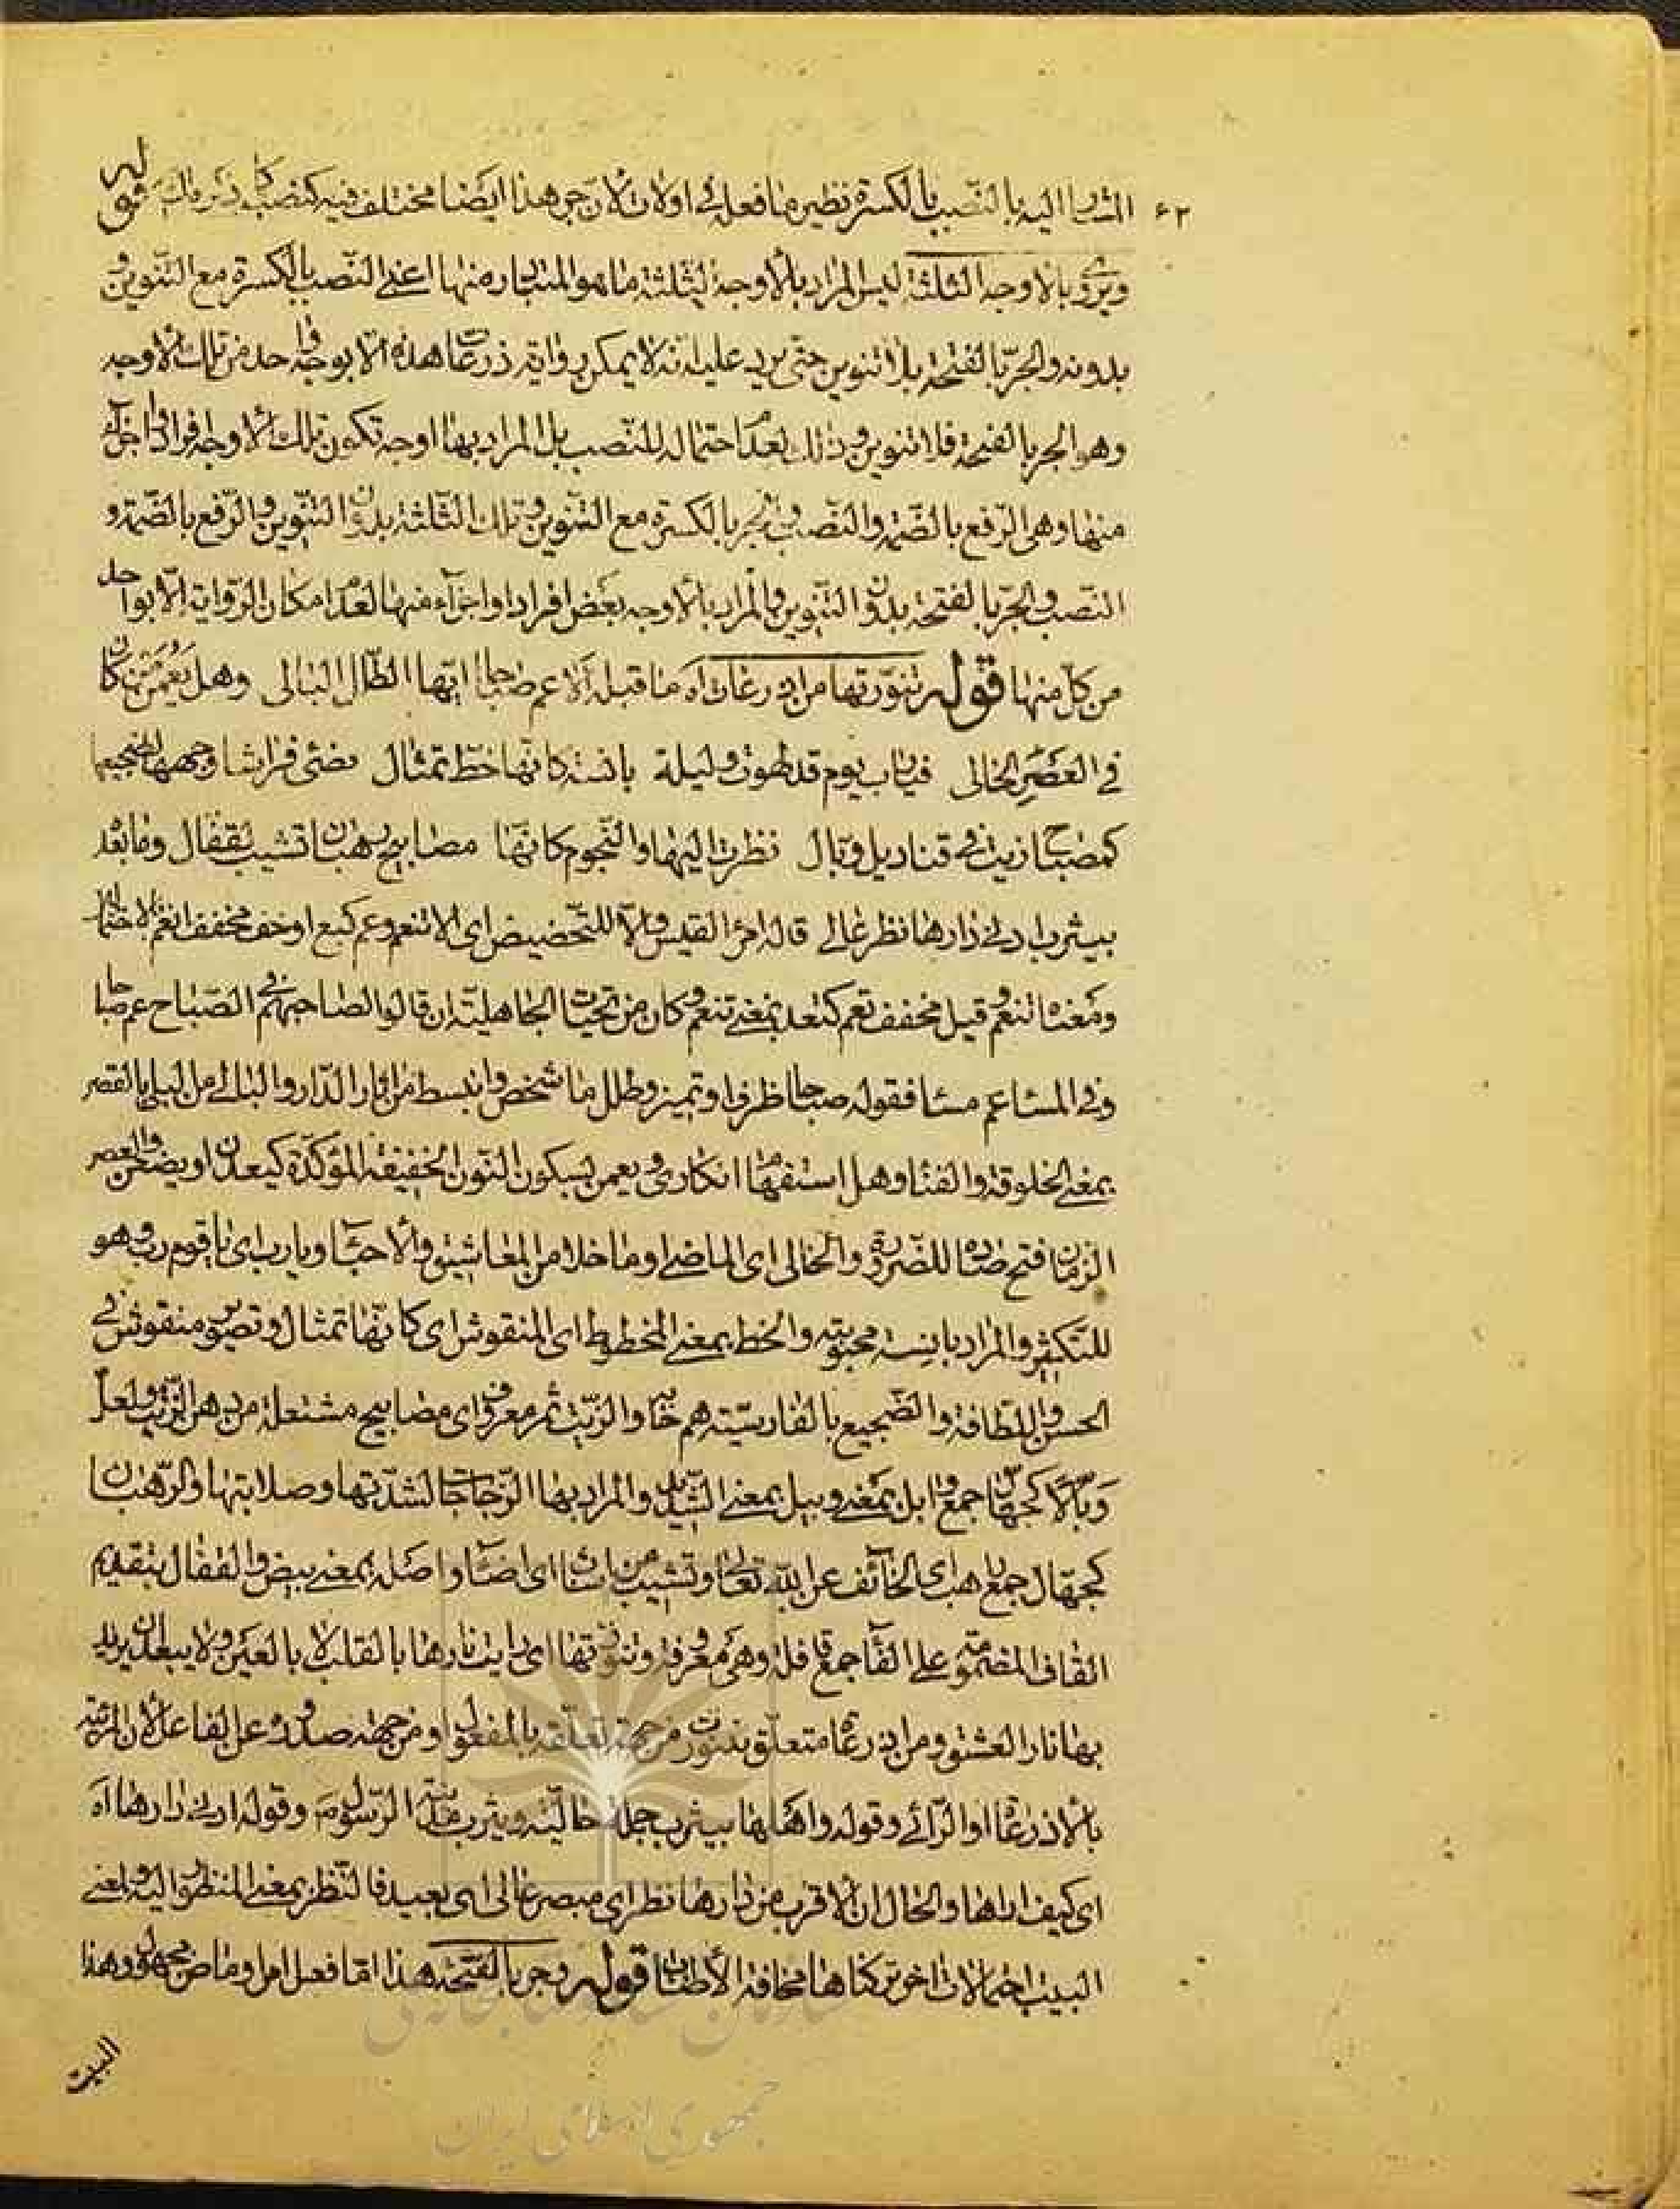 ٦٢ المشار اليه بالنصب بالكسرة نظير ما فعله في اولات لان جر هذا ايضا مختلف فيه كنصب كما ذكر ذلك قوله
ويروى بالاوجه الثلثة ليس المراد بالاوجه الثلثة ما هو المتبادر منها اعني النصب بالكسرة مع التنوين و
بدونه والجر بالفتحة بلا تنوين حتى يرد عليه انه لا يمكن رواية اذرعات هذه الا بوجه واحد من تلك الاوجه
وهو الجر بالفتحة فلا تنوين وذلك لعدم احتماله للنصب بل المراد بها اوجه تكون تلك الاوجه افرادا واجزآء
منها وهي الرفع بالضمة والنصب والجر بالكسرة مع التنوين وتلك الثلثة بدون التنوين والرفع بالضمة و
النصب والجر بالفتحة بدون التنوين والمراد بالاوجه بعض افراد او اجزآء منها لعدم امكان الرواية الا بواحد
من كل منها قوله تنورتها من اذرعات اه ما قبله الا عم صباحا ايها الطلل البالى وهل يعمن من كان
في العصر الخالى فيا رب يوم قد لهوت وليلة بانسة كانها خط تمثال مضئ فراشا وجهها لضجيعها
كمصباح زيت في قناديل وبال نظرت اليها والنجوم كانها مصابيح رهبان تشب لقفال وما بعد
بيثرب ادنى دارها نظر عالى قاله امرء القيس والا للتحضيض اى الا تنعم وعم كبع او خف مخفف انعم
ومعناه تنعم وقيل مخفف تعم كتعد بمعنى تنعم وكان من تحيات الجاهلية ان قالوا لصاحبهم في الصباح عم صباحا
وفي المساء عم مساء فقوله صباحا ظرف او تميز وطلل ما شخص وانبسط من اثار الدار والبالي من البلى بالقصر
بمعنى الخلوقة والفناء وهل استفهام انكارى ويعمن بسكون النون الخفيفة المؤكدة كيعدن او يضعن والعصر
الزمان فتح صاده للضرورة والخالى اى الماضي او ما خلا من المعاشيق والاحباء ويا رب اى يا قوم رب وهو
للتكثير والمراد بانسة محبوبته والخط بمعنى المخطوط اى المنقوش اى كانها تمثال وتصوير منقوش في
الحسن واللطافة والضجيع بالفارسية هم خابه والزيت ثمر معروف اى مصابيح مشتعلة من دهن الزيت ولعل
وبالا كجهال جمع وابل بمعنى وبيل بمعنى الشديد والمراد بها الزجاجات لشدتها وصلابتها والرهبان
كجهال جمع راهب اى الخائف عن الله تعالى وتشب من شاب اى اضاء واصله بمعنى بيض والقفال بتقديم
القاف المضمومة على الفاء جمع قافلة وهي معروفة وتنورتها اى رايت نارها بالقلب لا بالعين ولا يبعد ان يريد
بها نار العشق ومن اذرعات متعلق بتنورت من جهة تعلقه بالمفعول او من جهة صدوره عن الفاعل لان المرئية
بالاذرعات او الرائي وقوله واهلها بيثرب جملة حالية ويثرب مدينة الرسول ص وقوله ادنى دارها اه
اى كيف اراها والحال ان الاقرب من دارها نظر اى مبصر عالى اى بعيد فالنظر بمعنى المنظور اليه ولمعنى
البيت احتمالات اخر تركناها مخافة الاطناب قوله وجر بالفتحة هذا اما فعل امر او ماض مجهول وهذا
البيت
جمهوری اسلامی ایران